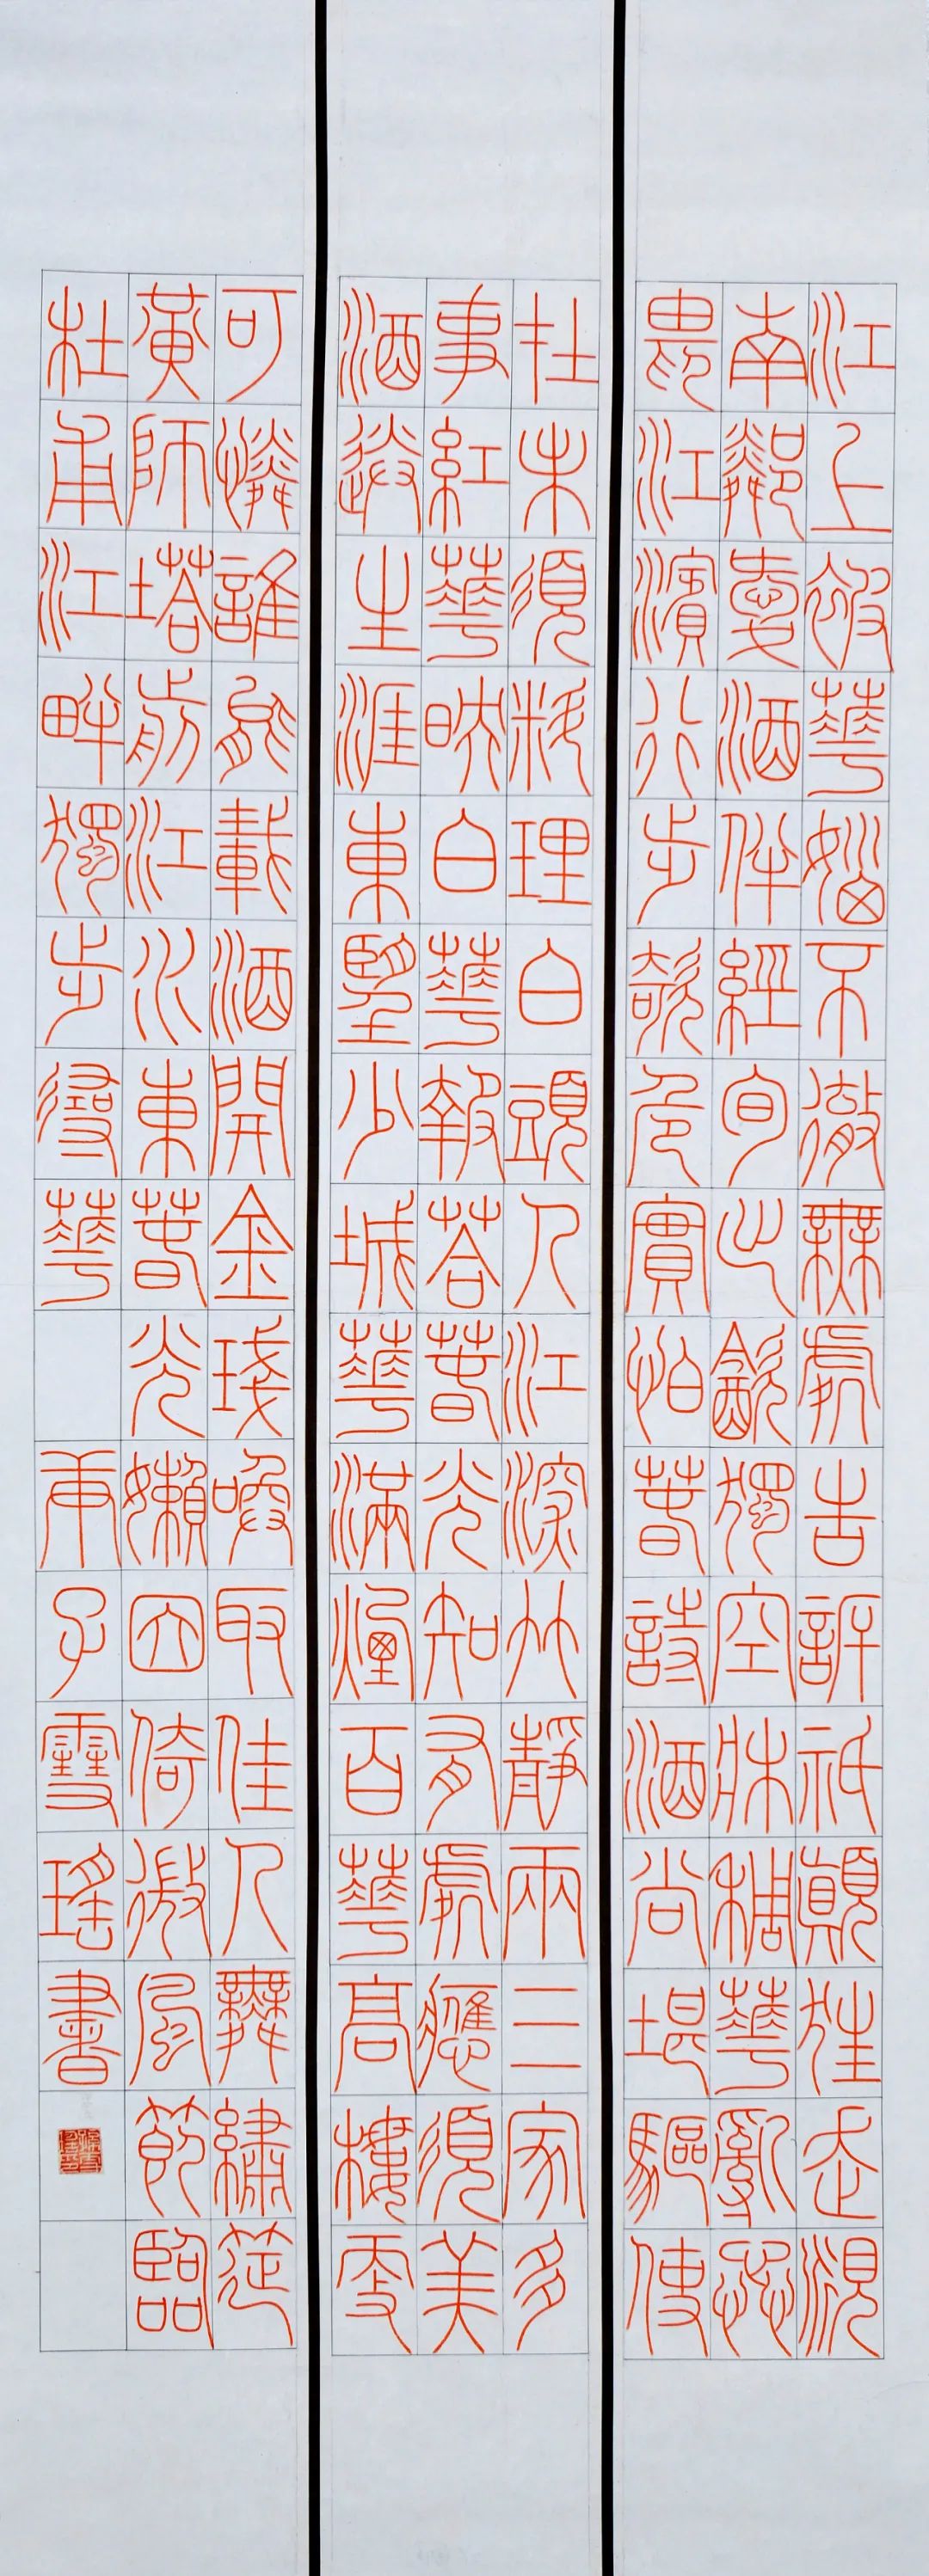 江上被華惱不徹無處告訴祗顛狂走覓
南鄰愛酒伴經旬出飲獨空牀稠華亂蕊
畏江濱行步欹危實怕春詩酒尚堪驅使
在未須料理白頭人江深竹靜兩三家多
事紅華映白華報答春光知有處應須美
酒送生涯東望少城華滿煙百華高樓更
可憐誰能載酒開金琖喚取佳人舞繡筵
黃師塔前江水東春光懶困倚微風節臨
杜甫江畔獨步尋華 庚子雪瑤書